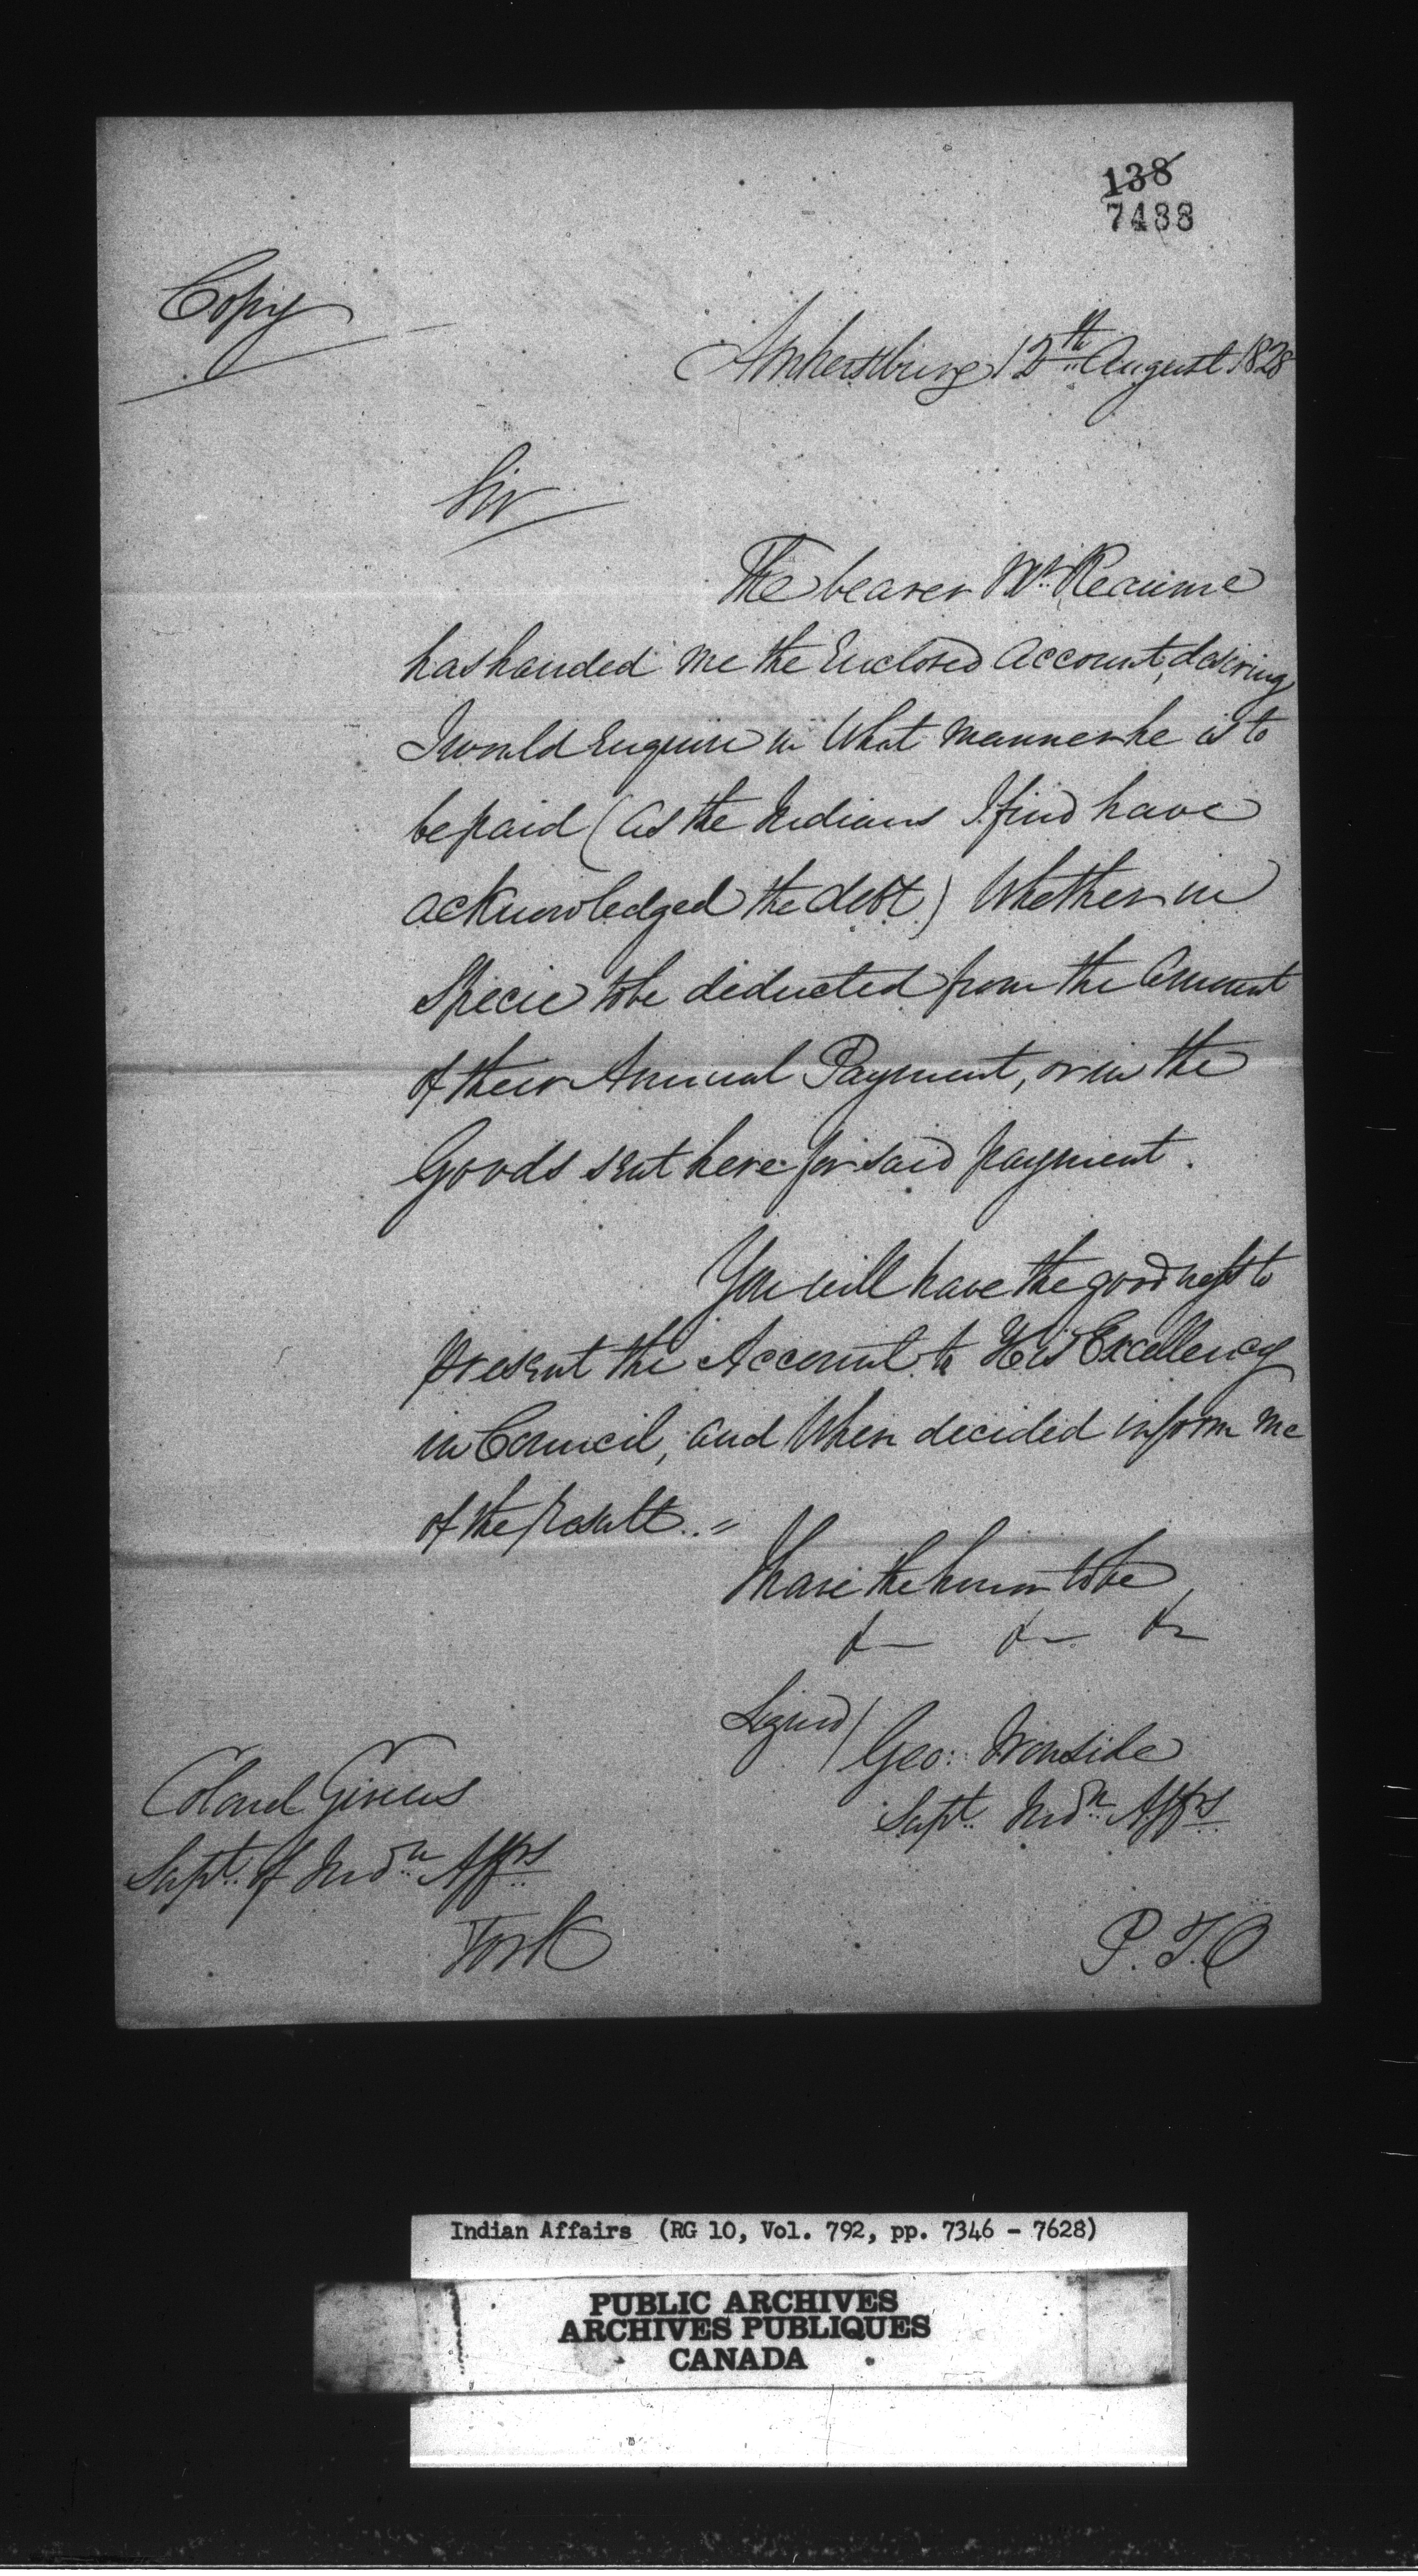 138
7488
Copy
Amherstburg 12th August 1828
Sir
The bearer Mr. Reaume
has handed me the Enclosed Account, desiring
I would Enquire in What manner he is to
be paid (as the Indians I find have
acknowledged the debt) Whether in
Specie to be deducted from the Amount
of their Annual Payment, or in the
Goods sent here for said payment.
You will have the goodness to
present the Account to His Excellency
in Council, and When decided inform me
of the result. =
I have the honor to be
&c &c &c
Signed / Geo: Ironside
Supt. Indn. Affrs.
Colonel Givens
Supt. of Indn. Affrs.
York
P.T.O
Indian Affairs (RG 10, Vol. 792, pp. 7346 - 7628)
PUBLIC ARCHIVES
ARCHIVES PUBLIQUES
CANADA